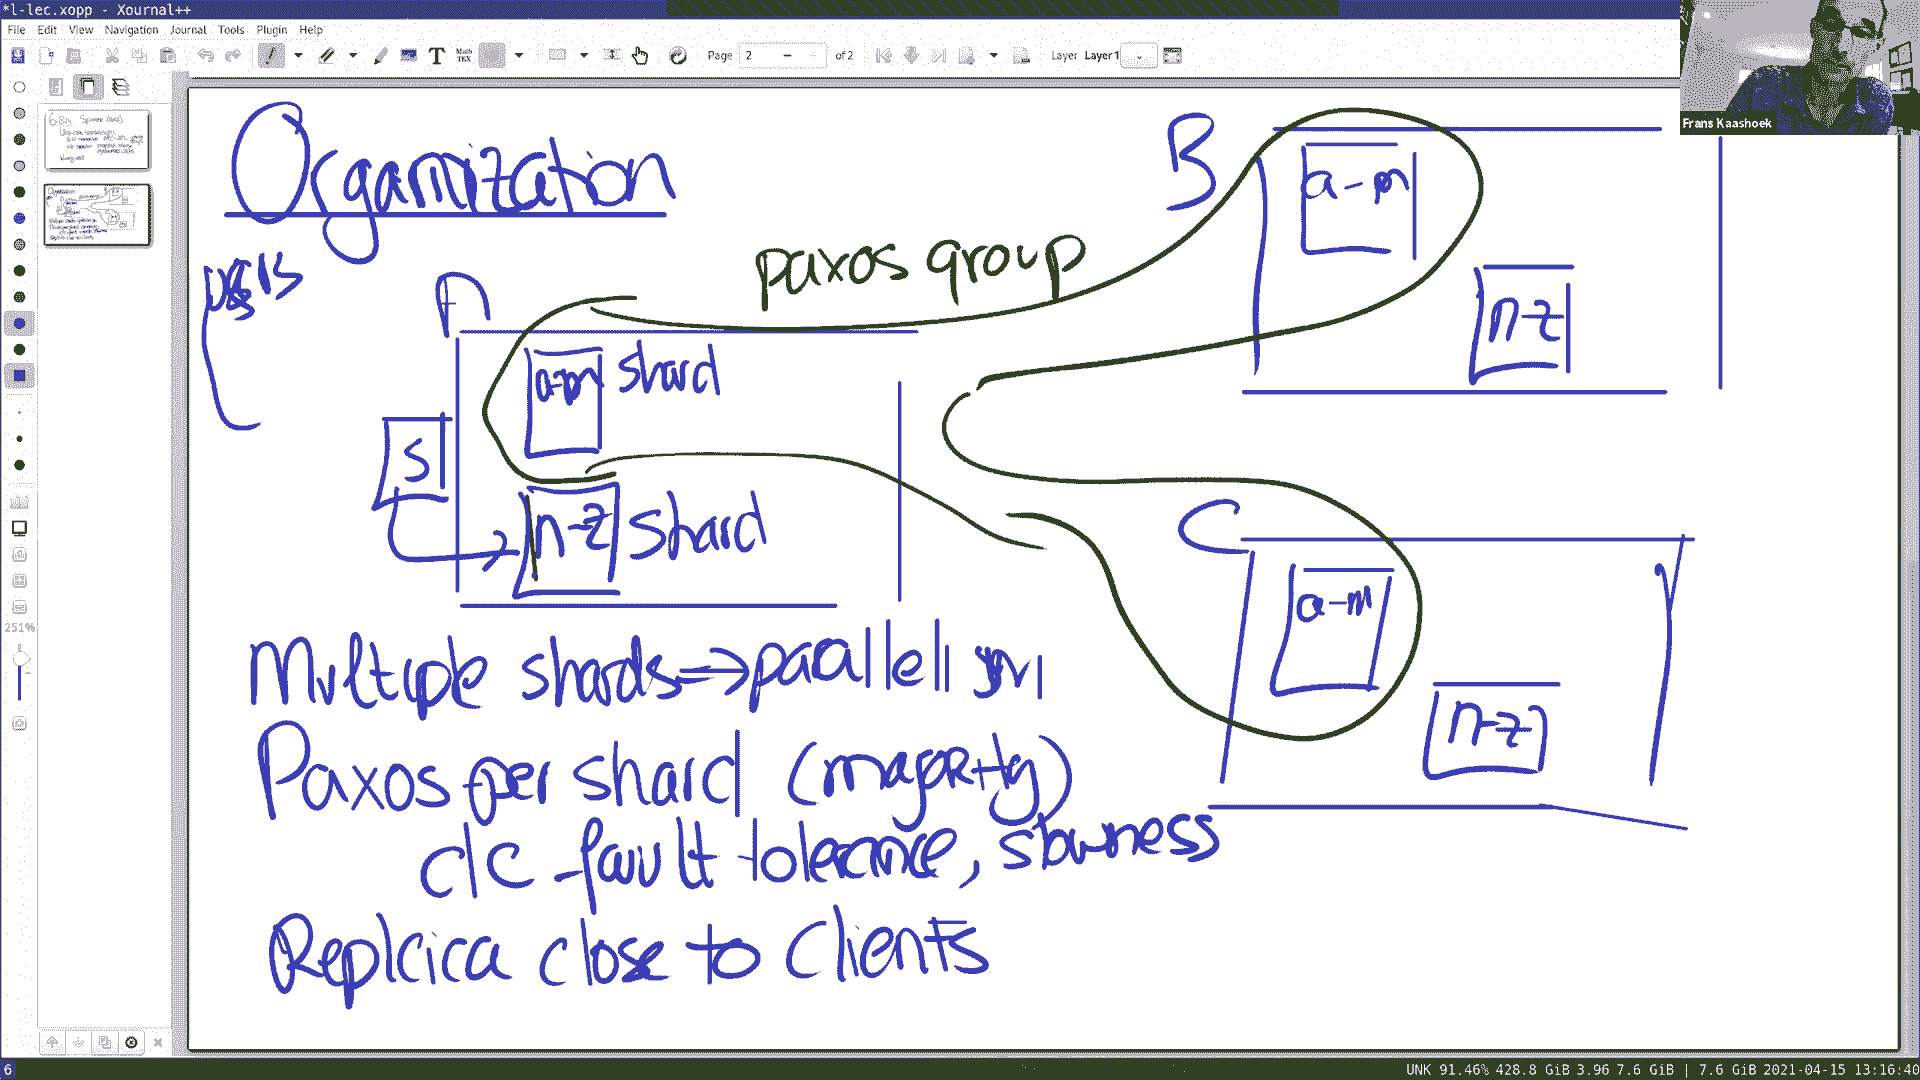 *l-lec.xopp - Xournal++
File Edit View Navigation Journal Tools Plugin Help
Page 2 of 2 Layer Layer 1
Frans Kaashoek
Organization
B
a-m
n-z
paxos group
A
a-m shard
S
n-z shard
C
a-m
n-z
Multiple shards => parallelism
Paxos per shard (majority)
d/c fault tolerance, slowness
Replcica close to clients
251%
6
UNK 91.46% 428.8 GiB 3.96 7.6 GiB | 7.6 GiB 2021-04-15 13:16:40